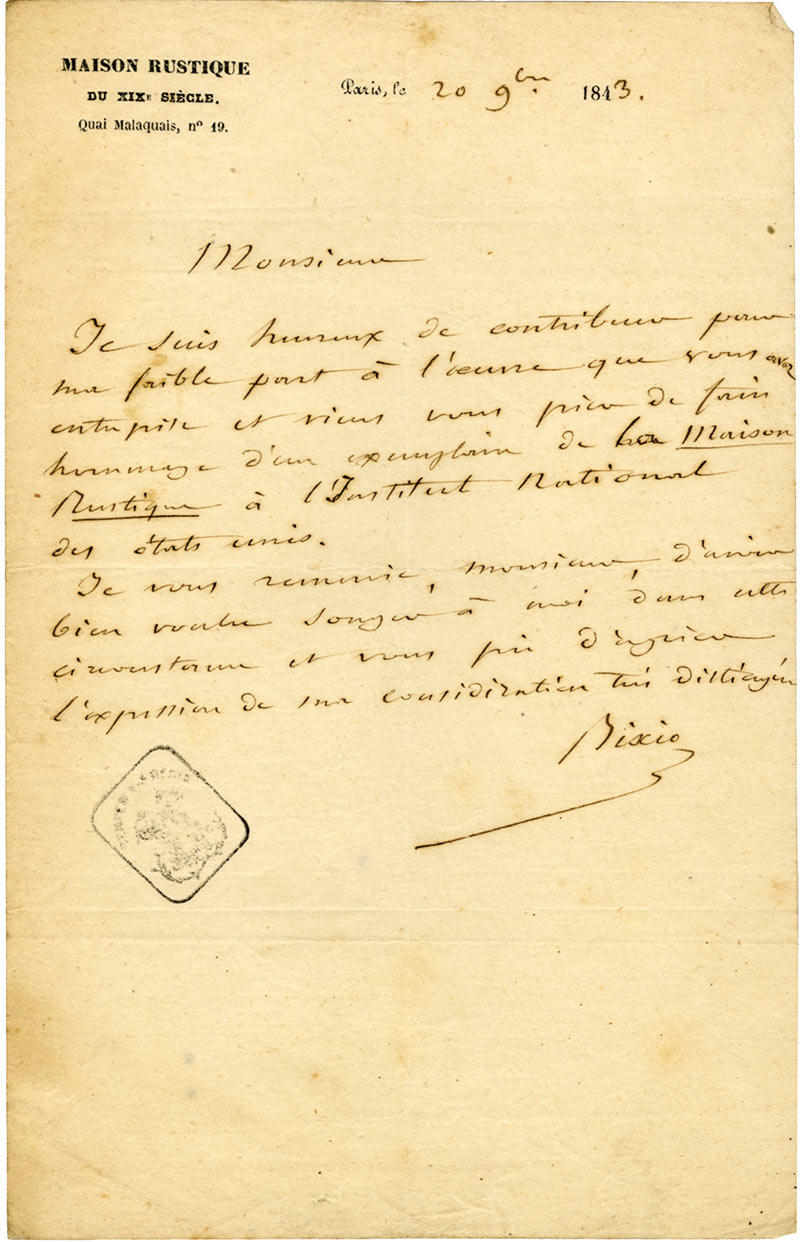 MAISON RUSTIQUE
DU XIXe SIÈCLE.
Quai Malaquais, no 19.
Paris, le 20 9bre. 1843.
Monsieur
Je suis heureux de contribuer pour
ma faible part à l'œuvre que vous avez
entreprise et viens vous prier de faire
hommage d'un exemplaire de la Maison
Rustique à l'Institut National
des états unis.
Je vous remercie, monsieur, d'avoir
bien voulu songer à moi dans cette
circonstance et vous prie d'agréer
l'expression de ma considération très distinguée
Bixio